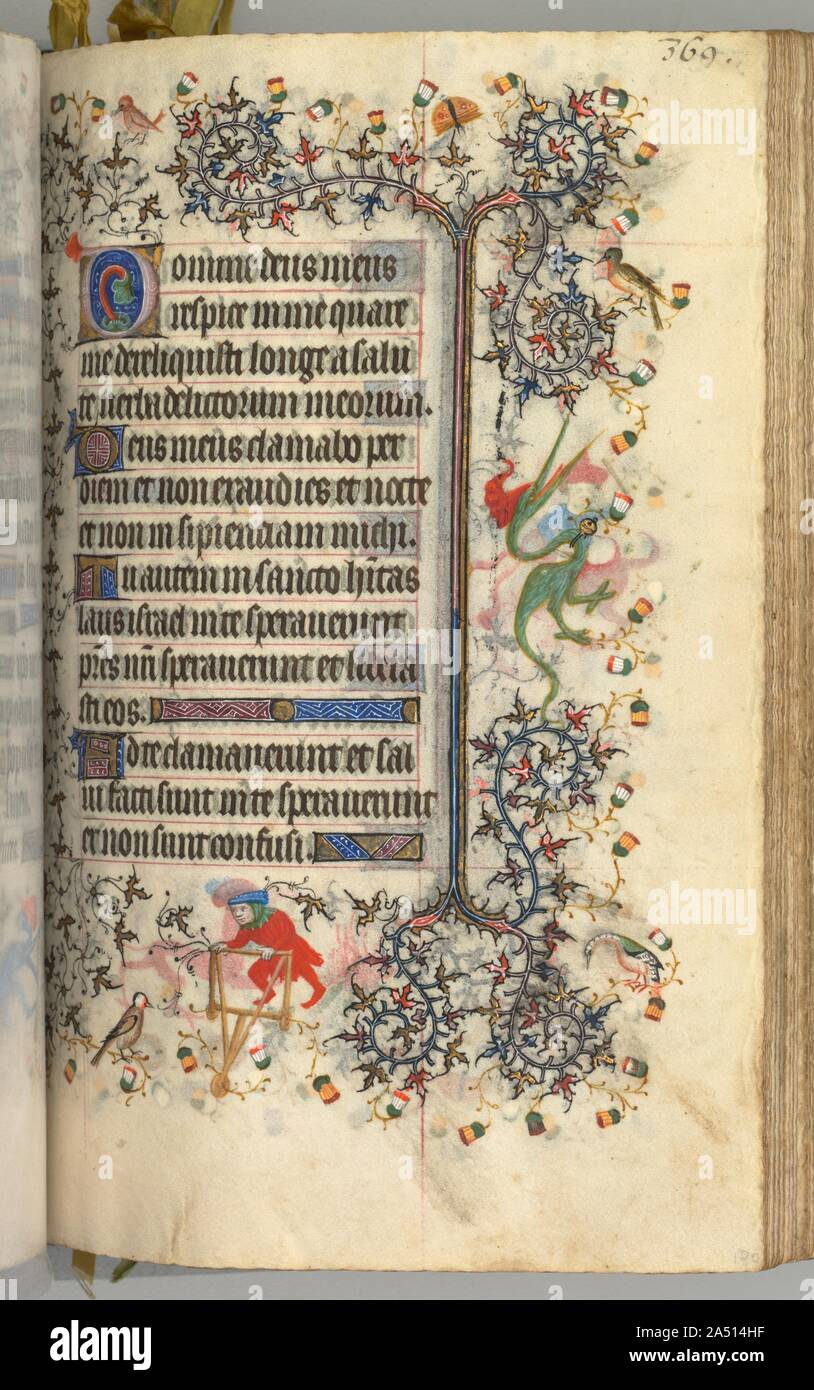 369.
Domine deus meus
respice in me quare
me dereliquisti longe a salu
te uerba delictorum meorum.
Deus meus clamabo per
diem et non exaudies et nocte
et non in sipienciam michi.
Tu autem in sancto hitas
laus israel in te sperauerunt
pres nri sperauerunt et libera
sti eos.
Ad te clamauerunt et sal
ui facti sunt in te sperauerunt
et non sunt confusi.
alamy
Image ID: 2A514HF
www.alamy.com